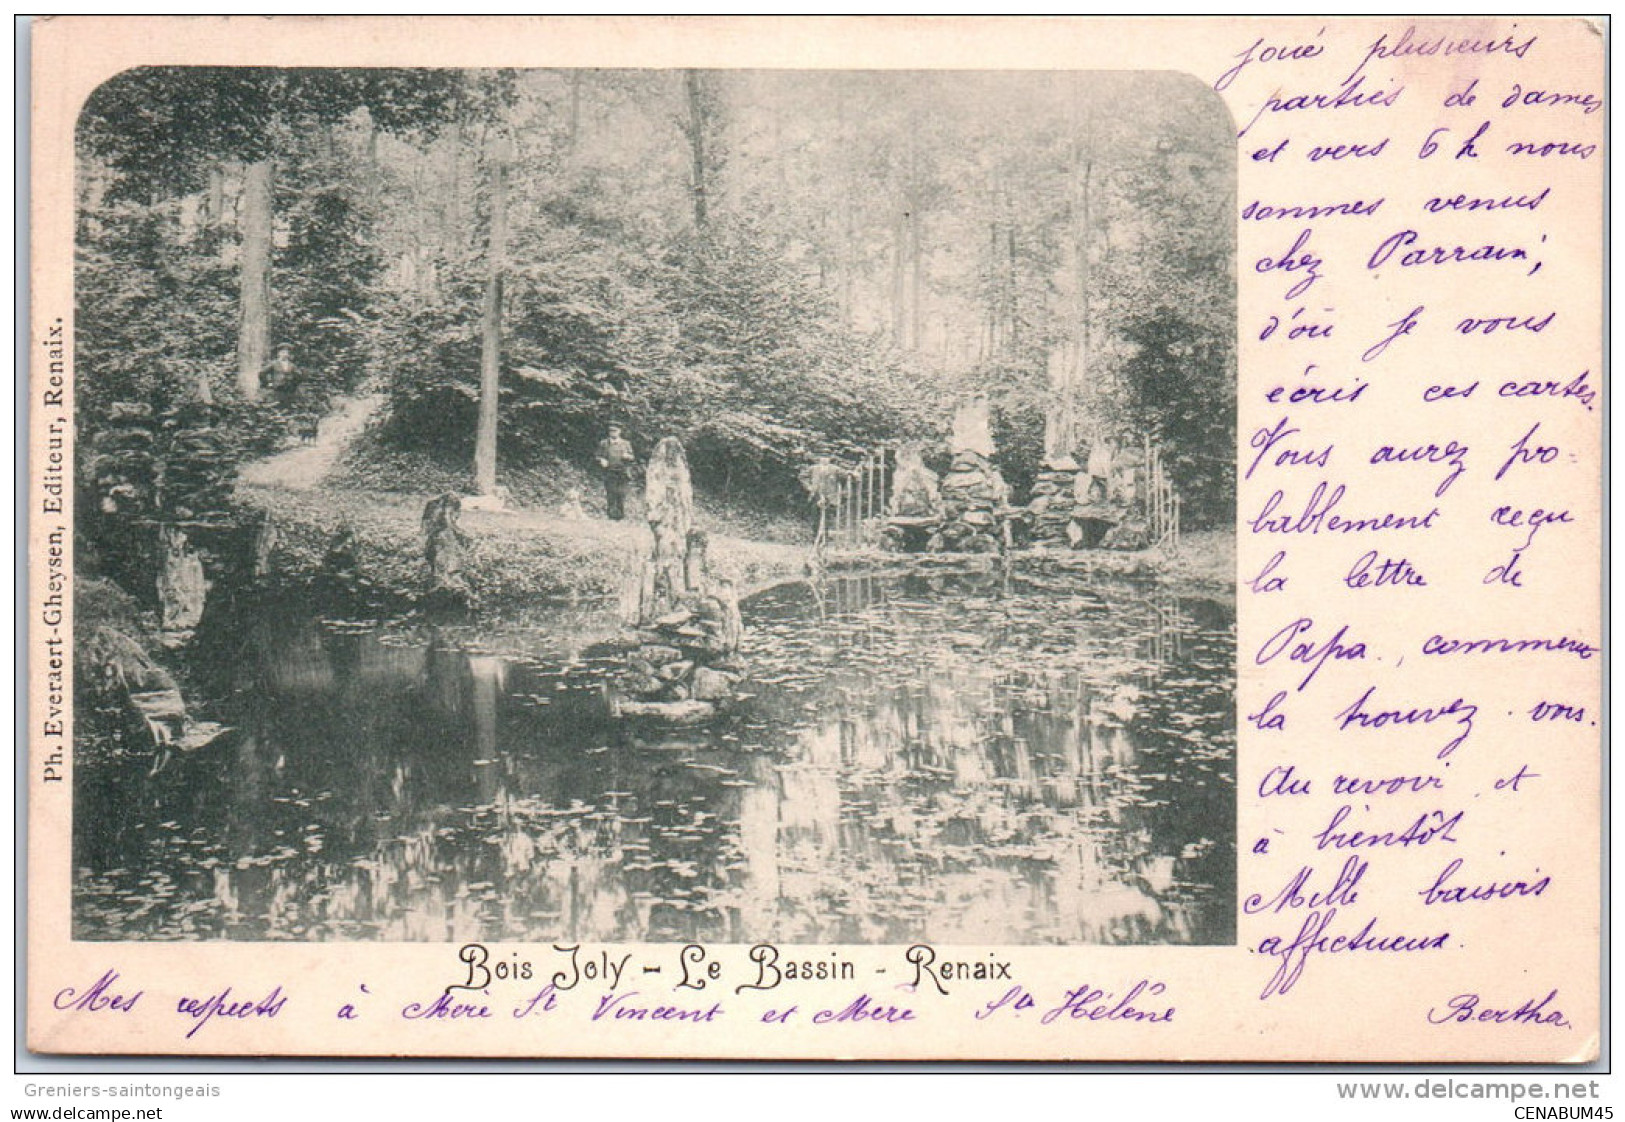 joué plusieurs
parties de dames
et vers 6 h nous
sommes venus
chez Parrain,
d'où je vous
écris ces cartes.
Vous aurez pro-
bablement reçu
la lettre de
Papa., comment
la trouvez-vous.
Au revoir et
à bientôt
Mille baisers
affectueux.
Bertha.
Ph. Everaert-Gheysen, Editeur, Renaix.
Bois Joly - Le Bassin - Renaix
Mes respects à Mère St Vincent et Mère Ste Hélène
Greniers-saintongeais
delcampe.com
www.delcampe.net
CENABUM45